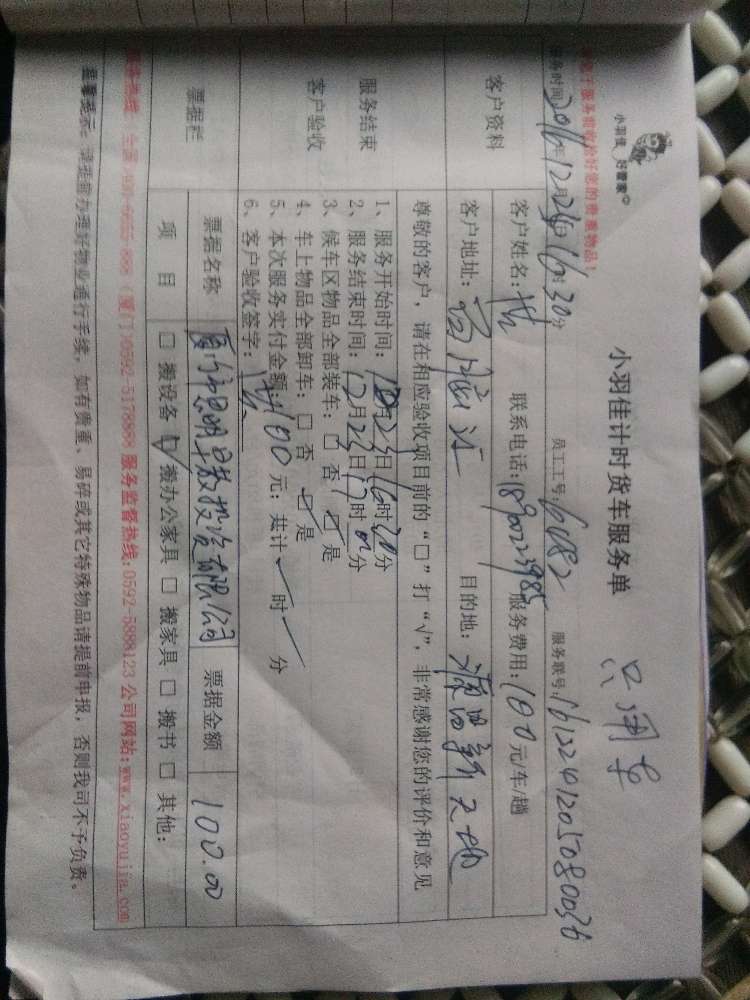 小羽佳 好管家
小羽佳计时货车服务单
只用车
服务时间:2016年12月24日16时30分 员工工号:6482 服务联号:1612241205080036
客户资料
客户姓名:洪 联系电话:18900223985 服务费用:100元/车/趟
客户地址: 目的地:源昌新天地
尊敬的客户,请在相应验收项目前的“□”打“√”,非常感谢您的评价和意见
服务结束
客户验收
1、服务开始时间: 月23日16时20分
2、服务结束时间:12月23日17时 分
3、候车区物品全部装车:□ 否 ☑ 是
4、车上物品全部卸车:□ 否 ☑ 是
5、本次服务实付金额:100元;共计/时/分
6、客户验收签字:洪
票据栏
票据名称 投资有限公司 票据金额 100.00
项 目 □ 搬设备 ☑ 搬办公家具 □ 搬家具 □ 搬书 □ 其他:
服务监督热线:0592-5888123 公司网站:www.xiaoyujia.com
温馨提示:请提前办理好物业通行手续,如有贵重、易碎或其它特殊物品请提前申报,否则我司不予负责。